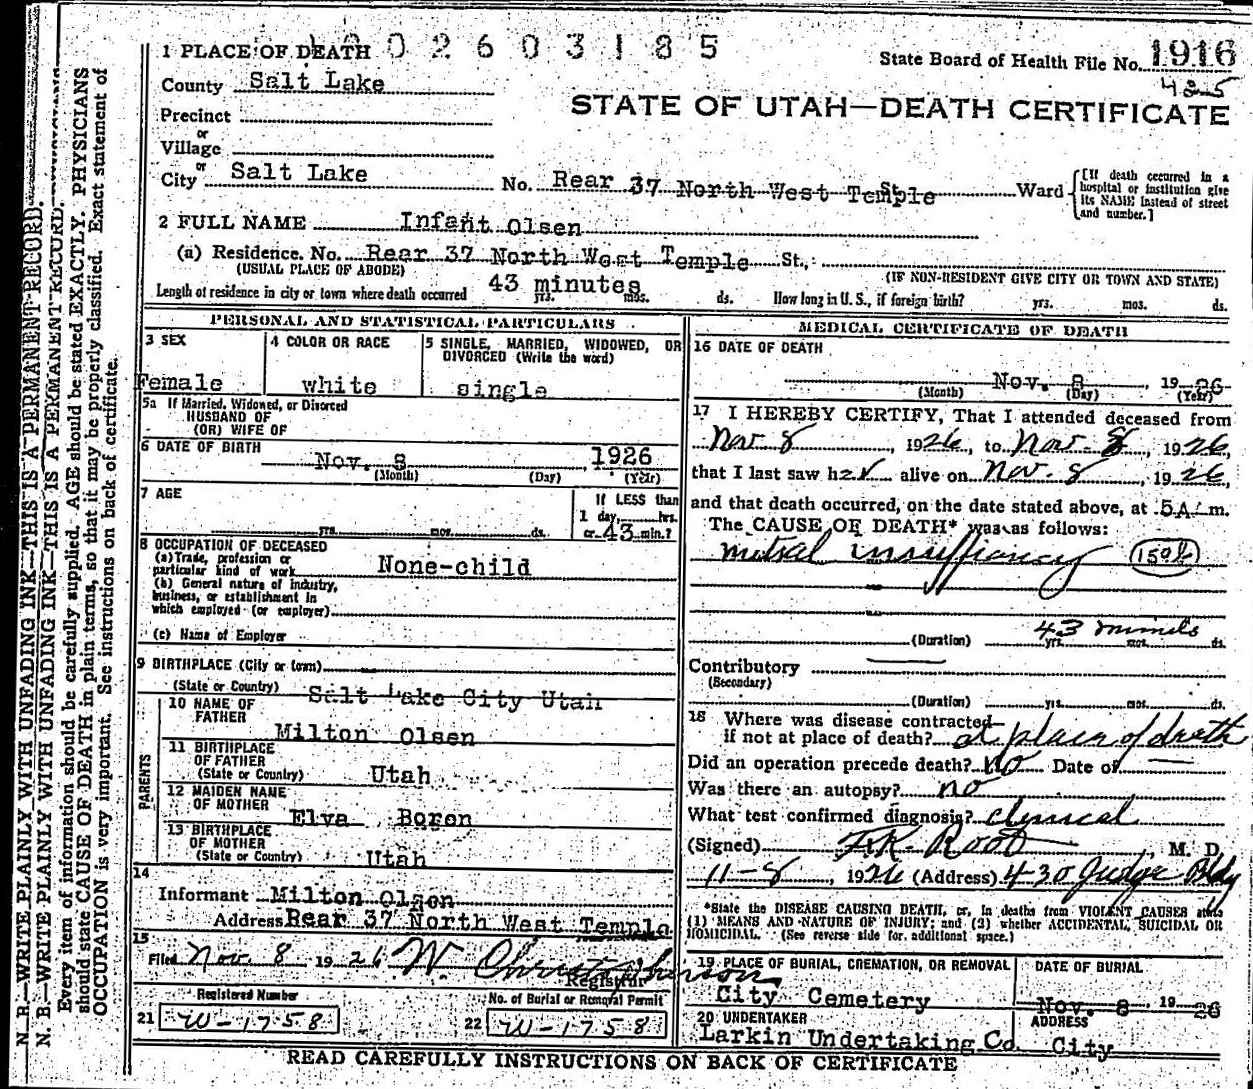 1 PLACE OF DEATH 1 0 0 2 6 0 3 1 8 5
State Board of Health File No. 1916
425
County Salt Lake
STATE OF UTAH—DEATH CERTIFICATE
Precinct
or
Village
or
City Salt Lake No. Rear 37 North West Temple St. Ward
[If death occurred in a hospital or institution give its NAME instead of street and number.]
2 FULL NAME Infant Olsen
(a) Residence. No. Rear 37 North West Temple St.,
(USUAL PLACE OF ABODE) (IF NON-RESIDENT GIVE CITY OR TOWN AND STATE)
Length of residence in city or town where death occurred 43 minutes yrs. mos. ds. How long in U. S., if foreign birth? yrs. mos. ds.
PERSONAL AND STATISTICAL PARTICULARS
3 SEX
Female
4 COLOR OR RACE
white
5 SINGLE, MARRIED, WIDOWED, OR DIVORCED (Write the word)
single
5a If Married, Widowed, or Divorced
HUSBAND OF
(OR) WIFE OF
6 DATE OF BIRTH
Nov. 8, 1926
(Month) (Day) (Year)
7 AGE
yrs. mos. ds.
If LESS than
1 day, hrs.
or 43 min.?
8 OCCUPATION OF DECEASED
(a) Trade, profession or
particular kind of work None-child
(b) General nature of industry,
business, or establishment in
which employed (or employer)
(c) Name of Employer
9 BIRTHPLACE (City or town)
(State or Country) Salt Lake City Utah
PARENTS
10 NAME OF
FATHER
Milton Olsen
11 BIRTHPLACE
OF FATHER
(State or Country) Utah
12 MAIDEN NAME
OF MOTHER
Elva Boren
13 BIRTHPLACE
OF MOTHER
(State or Country) Utah
14
Informant Milton Olsen
Address Rear 37 North West Temple
15
Filed Nov 8 1926 W. Christopherson
Registrar
Registered Number
21 W-1758
No. of Burial or Removal Permit
22 W-1758
MEDICAL CERTIFICATE OF DEATH
16 DATE OF DEATH
Nov. 8, 1926
(Month) (Day) (Year)
17 I HEREBY CERTIFY, That I attended deceased from
Nov 8, 1926, to Nov. 8, 1926,
that I last saw her alive on Nov. 8, 1926,
and that death occurred, on the date stated above, at 5 A. m.
The CAUSE OF DEATH* was as follows:
mitral insuffiancy
(Duration) 43 minuts yrs. mos. ds.
Contributory
(Secondary)
(Duration) yrs. mos. ds.
18 Where was disease contracted
if not at place of death? at place of death
Did an operation precede death? No Date of
Was there an autopsy? no
What test confirmed diagnosis? clinical
(Signed) F.K. Root, M. D.
11-8, 1926 (Address) 430 Judge Bldg
*State the DISEASE CAUSING DEATH, or, in deaths from VIOLENT CAUSES state
(1) MEANS AND NATURE OF INJURY; and (2) whether ACCIDENTAL, SUICIDAL OR
HOMICIDAL. (See reverse side for additional space.)
19 PLACE OF BURIAL, CREMATION, OR REMOVAL
City Cemetery
DATE OF BURIAL
Nov. 8 1926
20 UNDERTAKER
Larkin Undertaking Co.
ADDRESS
City
READ CAREFULLY INSTRUCTIONS ON BACK OF CERTIFICATE
N. B.—WRITE PLAINLY WITH UNFADING INK—THIS IS A PERMANENT RECORD.
N. B.—WRITE PLAINLY WITH UNFADING INK—THIS IS A PERMANENT RECORD.
Every item of information should be carefully supplied. AGE should be stated EXACTLY. PHYSICIANS
should state CAUSE OF DEATH in plain terms, so that it may be properly classified. Exact statement of
OCCUPATION is very important. See instructions on back of certificate.